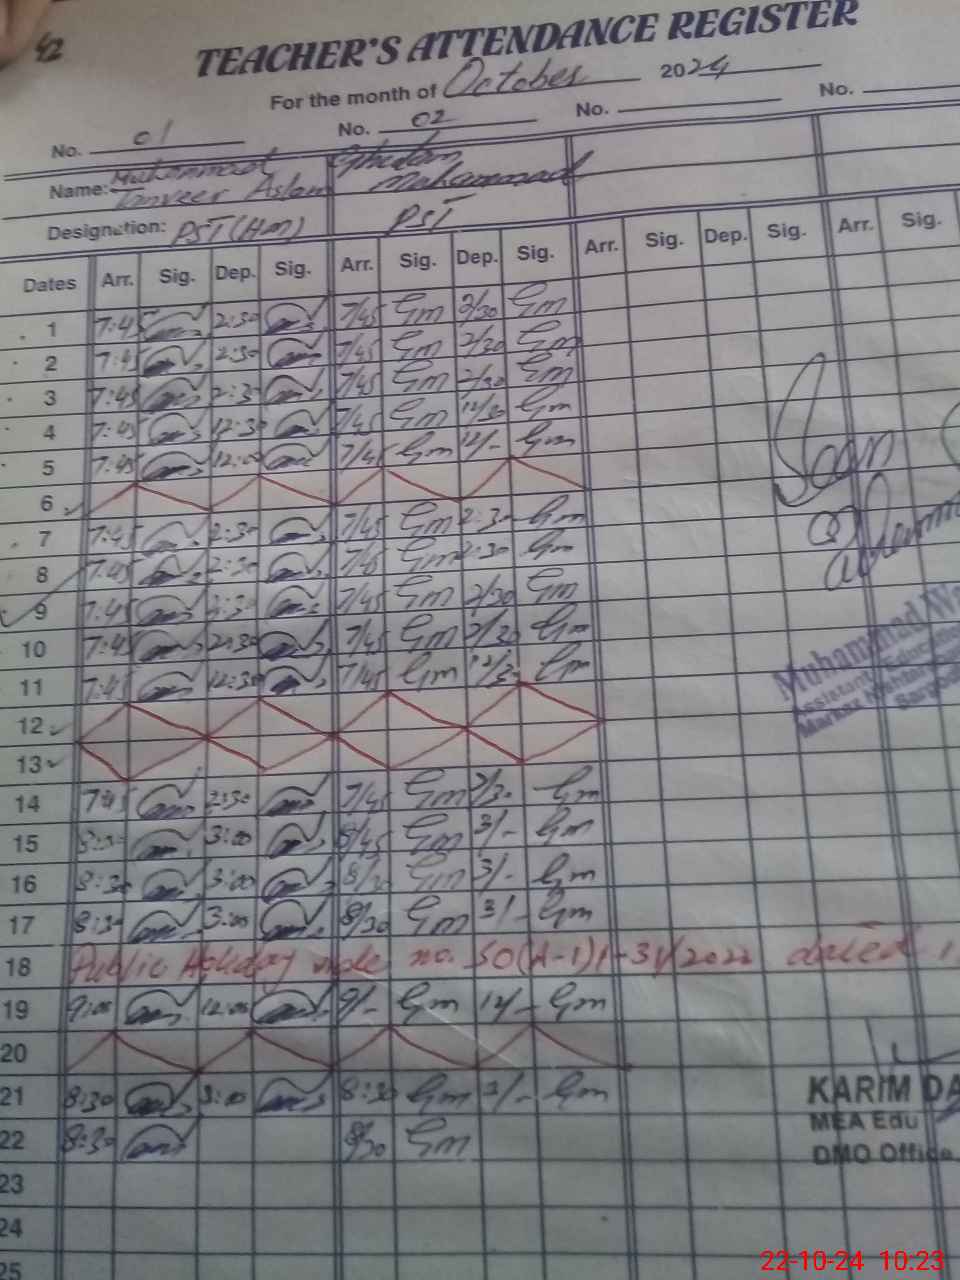 42
TEACHER'S ATTENDANCE REGISTER
For the month of October 2024
No. 01 No. 02 No. No.
Name: Muhammad Tanveer Aslam Ghulam Muhammad
Designation: PST (HM) PST
Dates Arr. Sig. Dep. Sig. Arr. Sig. Dep. Sig. Arr. Sig. Dep. Sig. Arr. Sig.
1 7:45 2:30 7/45 Gm 2/30 Gm
2 7:45 2:30 7/45 Gm 2/30 Gm
3 7:45 2:30 7/45 Gm 2/30 Gm
4 7:45 12:30 7/45 Gm 12/30 Gm
5 7:45 12:00 7/45 Gm 12/- Gm
Seen
6
7 7:45 2:30 7/45 Gm 2:30 Gm
8 7:45 2:30 7/45 Gm 2:30 Gm
9 7:45 2:30 7/45 Gm 2/30 Gm
10 7:45 2:30 7/45 Gm 2/30 Gm
11 7:45 12:30 7/45 Gm 12/30 Gm
Muhammad
Assistant Educ
Markaz
Sargo
12
13
14 7:45 2:30 7/45 Gm 2/30 Gm
15 3:00 8/45 Gm 3/- Gm
16 8:30 3:00 8/30 Gm 3/- Gm
17 8:30 3:00 8/30 Gm 3/- Gm
18 Public Holiday vide no. SO(A-1)1-31/2022 dated
19 9:00 12:00 9/- Gm 12/- Gm
20
21 8:30 3:00 8:30 Gm 3/- Gm
22 8:30 8/30 Gm
KARIM DA
MEA Edu
DMO Office
23
24
25
22-10-24 10:23